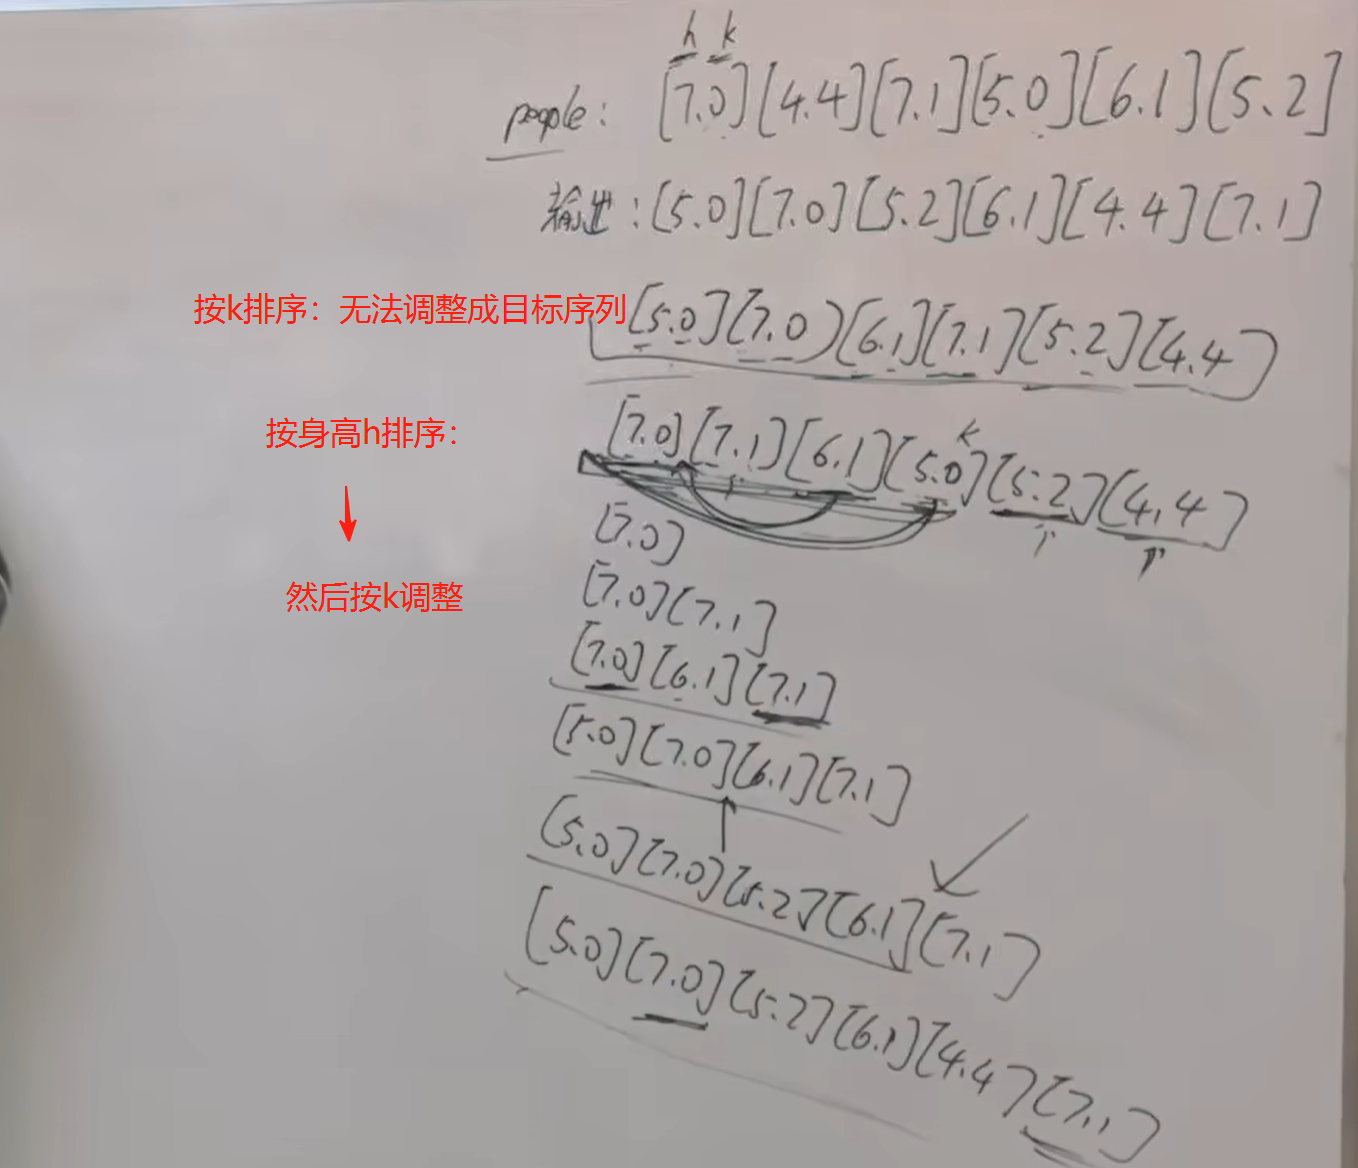 h k
people: [7.0][4.4][7.1][5.0][6.1][5.2]
输出:[5.0][7.0][5.2][6.1][4.4][7.1]
按k排序：无法调整成目标序列 [5.0][7.0)[6.1][7.1][5.2][4.4]
k
按身高h排序： [7.0][7.1][6.1][5.0][5.2][4.4]
[7.0]
然后按k调整 [7.0][7.1]
[7.0][6.1][7.1]
[5.0][7.0][6.1][7.1]
[5.0][7.0][5.2][6.1][7.1]
[5.0][7.0][5.2][6.1][4.4][7.1]